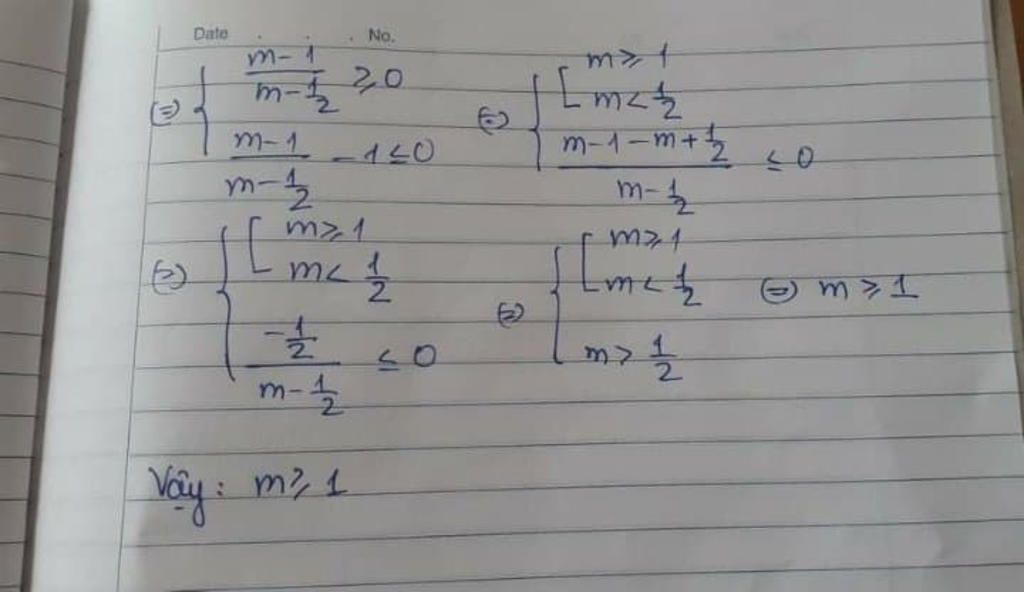 Date . . . No.
(=) { (m-1)/(m-1/2) ≥ 0 (=) { [ m ≥ 1
m < 1/2
(m-1)/(m-1/2) - 1 ≤ 0 (m-1-m+1/2)/(m-1/2) ≤ 0
(=) { [ m ≥ 1 (=) { [ m ≥ 1
m < 1/2 m < 1/2 (=) m ≥ 1
(-1/2)/(m-1/2) ≤ 0 m > 1/2
Vậy: m ≥ 1